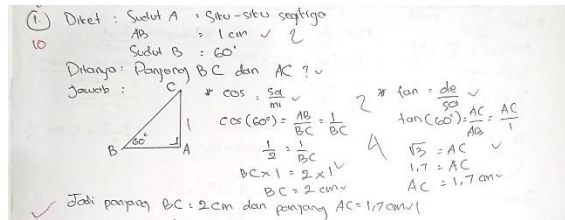 1. Diket : Sudut A = Siku-siku segitiga
10
AB = 1 cm ✓ 2
Sudut B = 60°
Ditanya : Panjang BC dan AC ? ✓
Jawab :
C
1
60°
B A
* cos = sa/mi ✓
cos (60°) = AB/BC = 1/BC
1/2 = 1/BC
BC × 1 = 2 × 1 ✓
BC = 2 cm ✓
2
* tan = de/sa ✓
tan (60°) = AC/AB = AC/1
4
√3 = AC ✓
1,7 = AC
AC = 1,7 cm ✓
✓ Jadi panjang BC = 2 cm dan panjang AC = 1,7 cm ✓